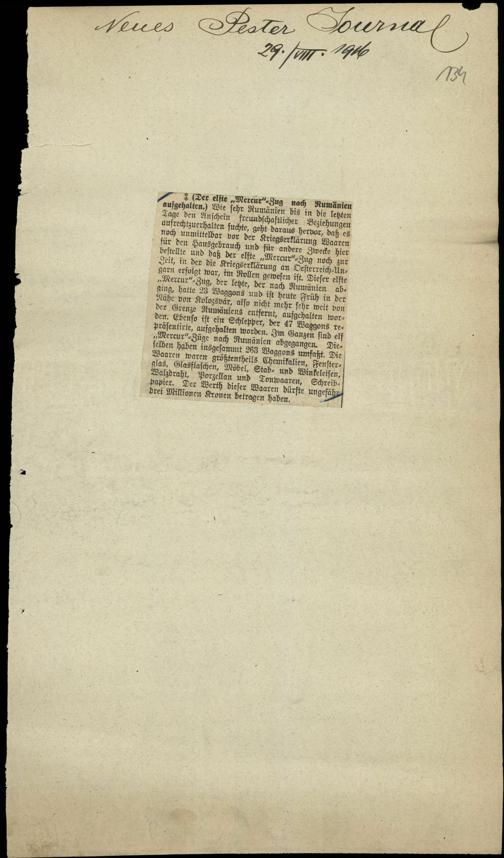 Neues Pester Journal
29./VIII. 1916
134
‡ (Der elfte „Mercur"-Zug nach Rumänien
aufgehalten.) Wie sehr Rumänien bis in die letzten
Tage den Anschein freundschaftlicher Beziehungen
aufrechtzuerhalten suchte, geht daraus hervor, daß es
noch unmittelbar vor der Kriegserklärung Waaren
für den Hausgebrauch und für andere Zwecke hier
bestellte und daß der elfte „Mercur"-Zug noch zur
Zeit, in der die Kriegserklärung an Oesterreich-Un-
garn erfolgt war, im Rollen gewesen ist. Dieser elfte
„Mercur"-Zug, der letzte, der nach Rumänien ab-
ging, hatte 23 Waggons und ist heute Früh in der
Nähe von Kolozsvár, also nicht mehr sehr weit von
der Grenze Rumäniens entfernt, aufgehalten wor-
den. Ebenso ist ein Schlepper, der 47 Waggons re-
präsentirte, aufgehalten worden. Im Ganzen sind elf
„Mercur"-Züge nach Rumänien abgegangen. Die-
selben haben insgesammt 263 Waggons umfaßt. Die
Waaren waren größtentheils Chemikalien, Fenster-
glas, Glasflaschen, Möbel, Stab- und Winkeleisen,
Walzdraht, Porzellan und Tonwaaren, Schreib-
papier. Der Werth dieser Waaren dürfte ungefähr
drei Millionen Kronen betragen haben.